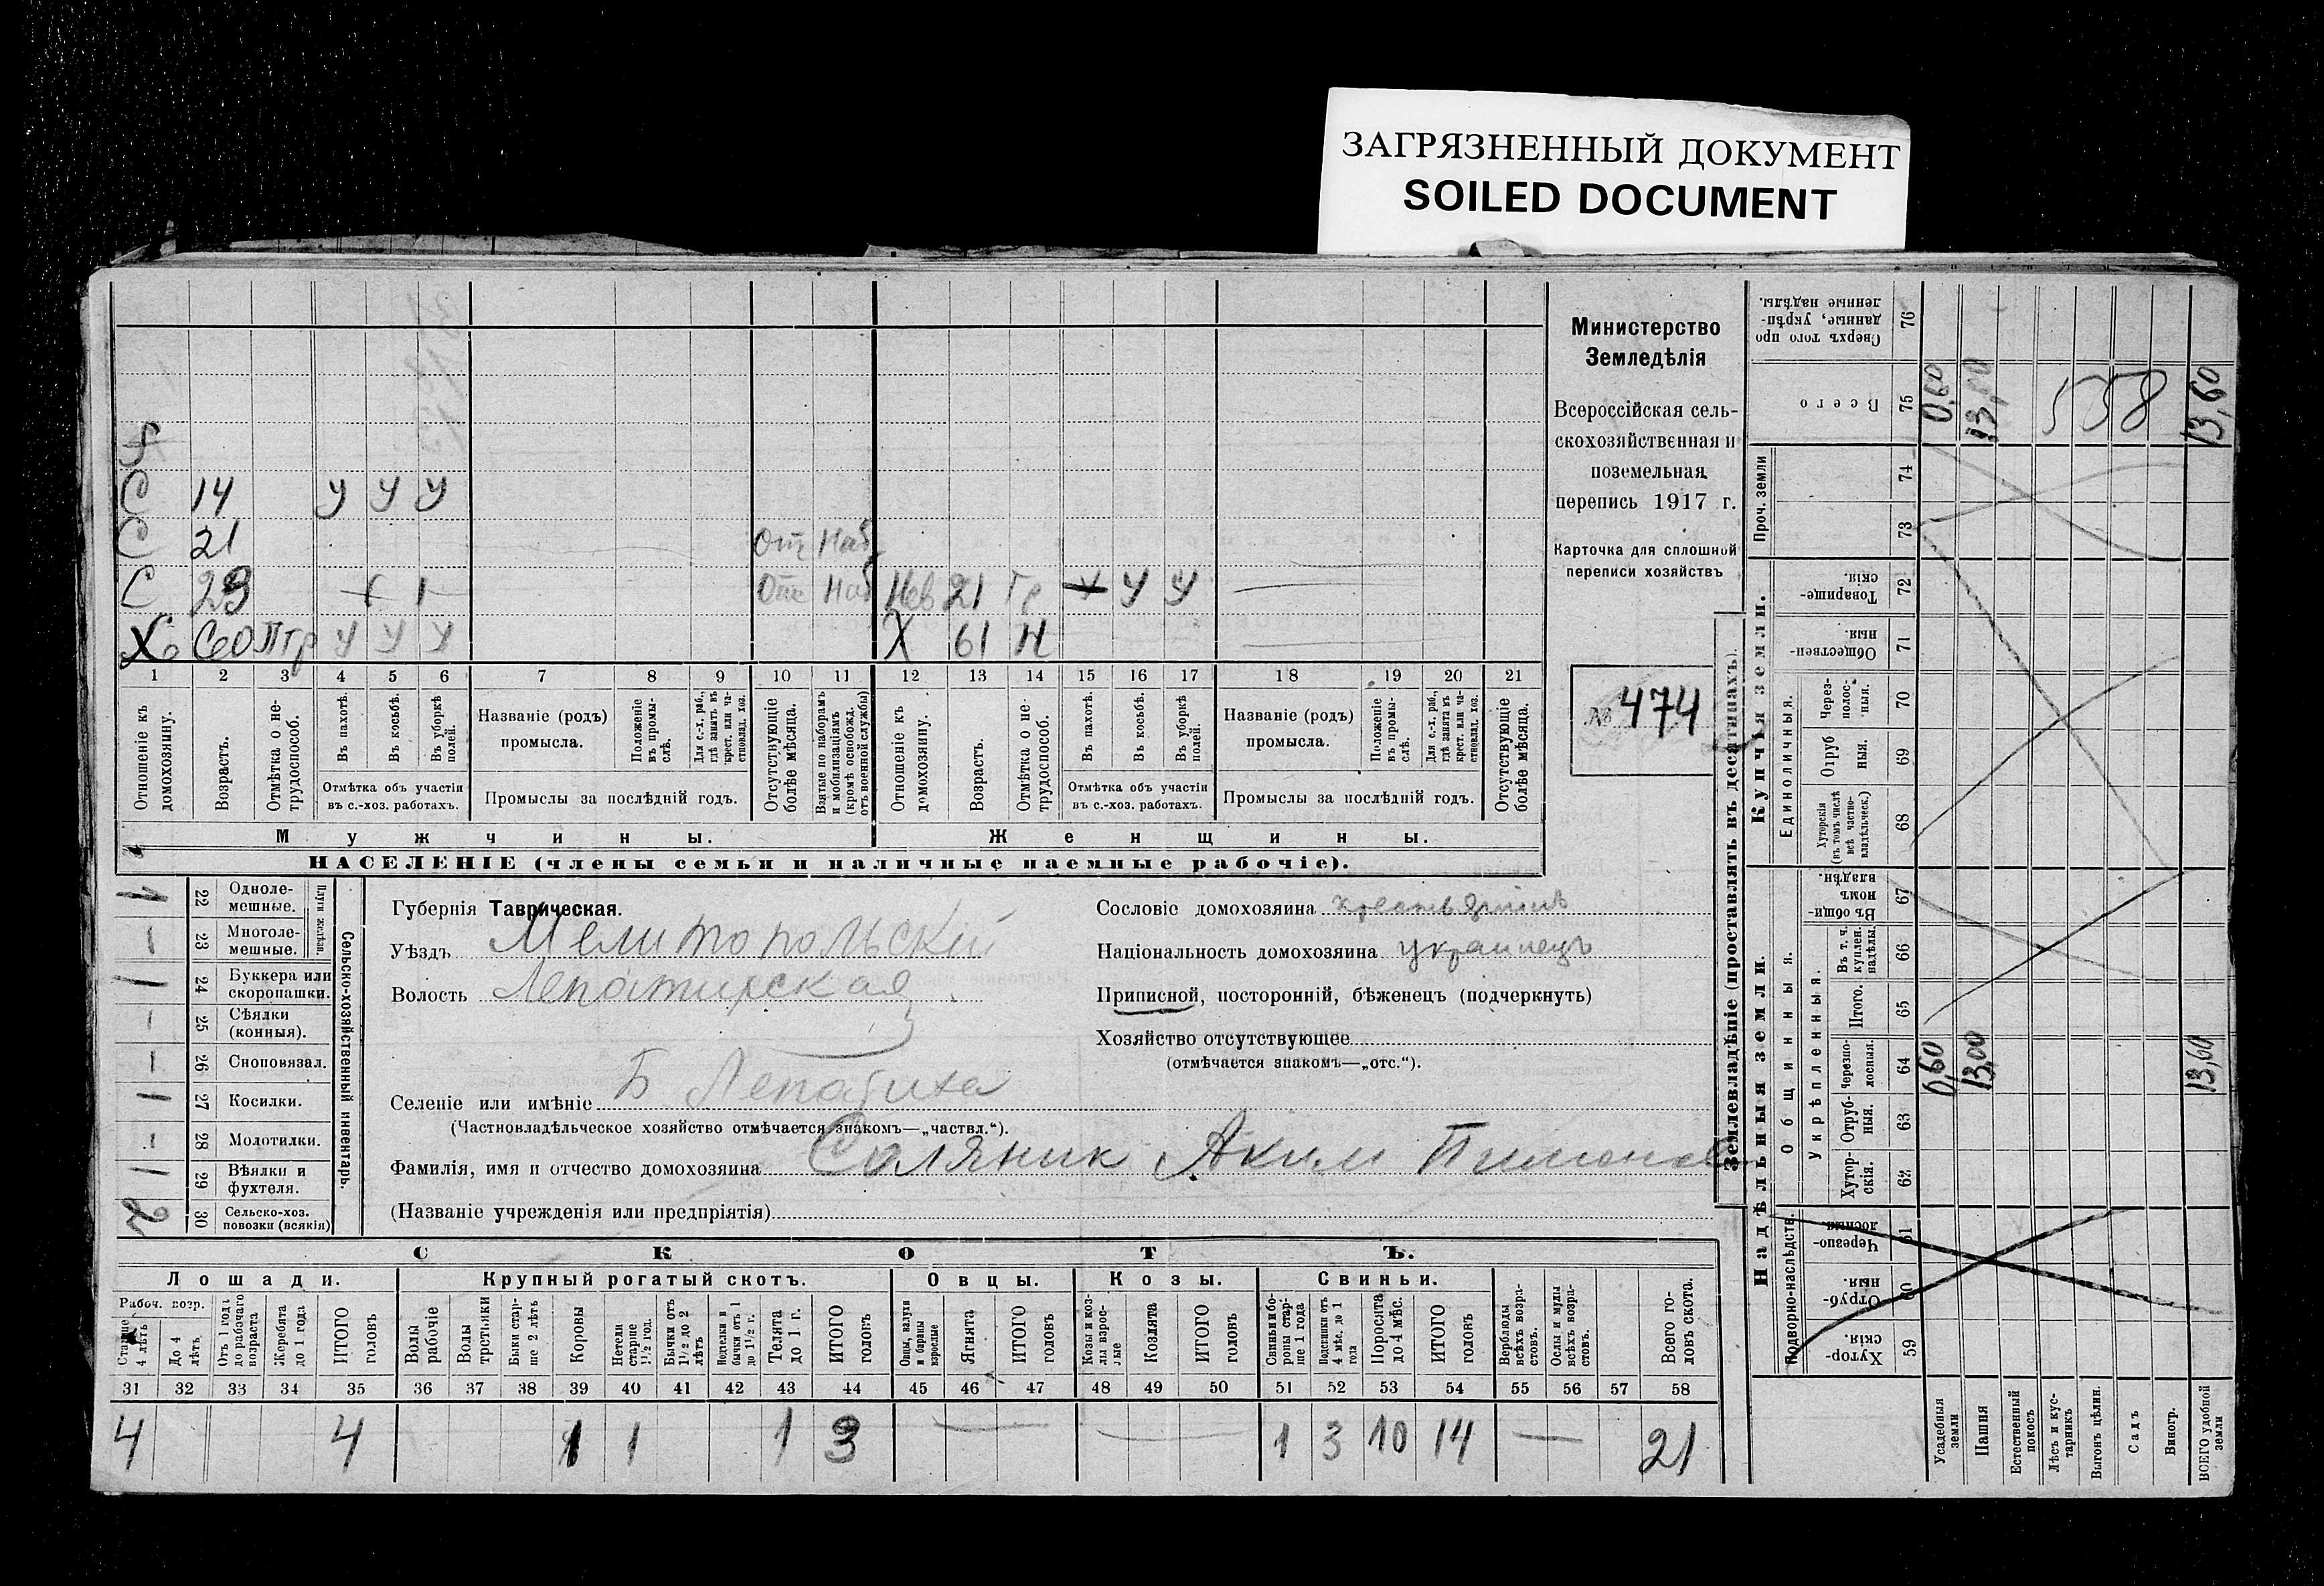 ЗАГРЯЗНЕННЫЙ ДОКУМЕНТ
SOILED DOCUMENT
С 14 У У У
С 21 Отс Наб
С 23 Отс Наб Нев 21 Гр У У
Хо 60 Птр У У У Х 61 Н
1 2 3 4 5 6 7 8 9 10 11 12 13 14 15 16 17 18 19 20 21
Отношеніе къ домохозяину.
Возрастъ.
Отмѣтка о нетрудоспособ.
Въ пахотѣ.
Въ косьбѣ.
Въ уборкѣ полей.
Отмѣтка объ участіи въ с.-хоз. работахъ.
Названіе (родъ) промысла.
Положеніе въ промыслѣ.
Для с.-х. раб., гдѣ занятъ въ крест. или частновлад. хоз.
Промыслы за послѣдній годъ.
Отсутствующіе болѣе мѣсяца.
Взятые по наборамъ и мобилизаціямъ (кромѣ освобожд. отъ военной службы)
Отношеніе къ домохозяину.
Возрастъ.
Отмѣтка о нетрудоспособ.
Въ пахотѣ.
Въ косьбѣ.
Въ уборкѣ полей.
Отмѣтка объ участіи въ с.-хоз. работахъ.
Названіе (родъ) промысла.
Положеніе въ промыслѣ.
Для с.-х. раб., гдѣ занята въ крест. или частновлад. хоз.
Промыслы за послѣдній годъ.
Отсутствующіе болѣе мѣсяца.
Мужчины. Женщины.
НАСЕЛЕНІЕ (члены семьи и наличные наемные рабочіе).
Министерство
Земледѣлія
Всероссійская сель-
скохозяйственная и
поземельная
перепись 1917 г.
Карточка для сплошной
переписи хозяйствъ
№ 474
Сельско-хозяйственный инвентарь.
Плуги желѣзн.
1 22 Однолемешные.
23 Многолемешные.
1 24 Буккера или скоропашки.
25 Сѣялки (конныя).
26 Сноповязал.
1 27 Косилки.
28 Молотилки.
1 29 Вѣялки и фухтеля.
2 30 Сельско-хоз. повозки (всякія)
Губернія Таврическая.
Уѣздъ Мелитопольскій
Волость Лепатихская
Селеніе или имѣніе Б Лепатиха
(Частновладѣльческое хозяйство отмѣчается знакомъ—„частвл.“).
Фамилія, имя и отчество домохозяина Соляник Аким Пименов
(Названіе учрежденія или предпріятія)
Сословіе домохозяина крестьянинъ
Національность домохозяина украинецъ
Приписной, посторонній, бѣженецъ (подчеркнуть)
Хозяйство отсутствующее
(отмѣчается знакомъ—„отс.“).
СКОТЪ.
Лошади. Крупный рогатый скотъ. Овцы. Козы. Свиньи.
Рабоч. возр.
Старше 4 лѣтъ
До 4 лѣтъ
Отъ 1 года до рабочаго возраста
Жеребята до 1 года
ИТОГО головъ
Волы рабочіе
Волы третьяки
Быки старше 2 лѣтъ
Коровы
Нетели старше 1½ год.
Бычки отъ 1½ до 2 лѣтъ
Подтелки и бычки отъ 1 до 1½ г.
Телята до 1 г.
ИТОГО головъ
Овцы, валухи и бараны взрослые
Ягнята
ИТОГО головъ
Козы и козлы взрослые
Козлята
ИТОГО головъ
Свиньи и боровы старше 1 года
Подсвинки отъ 4 мѣс. до 1 года
Поросята до 4 мѣс.
ИТОГО головъ
Верблюды всѣхъ возрастовъ.
Ослы и мулы всѣхъ возрастовъ.
Всего головъ скота.
31 32 33 34 35 36 37 38 39 40 41 42 43 44 45 46 47 48 49 50 51 52 53 54 55 56 57 58
4 4 1 1 1 3 1 3 10 14 21
Землевладѣніе (проставлять въ десятинахъ).
Купчія земли.
Надѣльныя земли.
Сверхъ того проданные, укрѣпленные надѣлы. 76
Всего 75 0,60 13,00 558 13,60
Проч. земли 74
73
Товарищескія. 72
Общественныя. 71
Единоличныя.
Черезполосныя. 70
Отрубныя. 69
Хуторскія (въ томъ числѣ всѣ частновладѣльческ.) 68
Общинныя.
Въ общинномъ владѣн. 67
Укрѣпленныя.
Въ т. ч. куплен. надѣлы. 66
Итого. 65
Черезполосныя. 64 0,60 13,00 13,60
Отрубныя. 63
Хуторскія. 62
Подворно-наслѣдств.
Черезполосныя. 61
Отрубныя. 60
Хуторскія. 59
Усадебныя земли
Пашня
Естественный покосъ
Лѣсъ и кустарникъ
Выгонъ цѣлин.
Садъ
Виногр.
ВСЕГО удобной земли